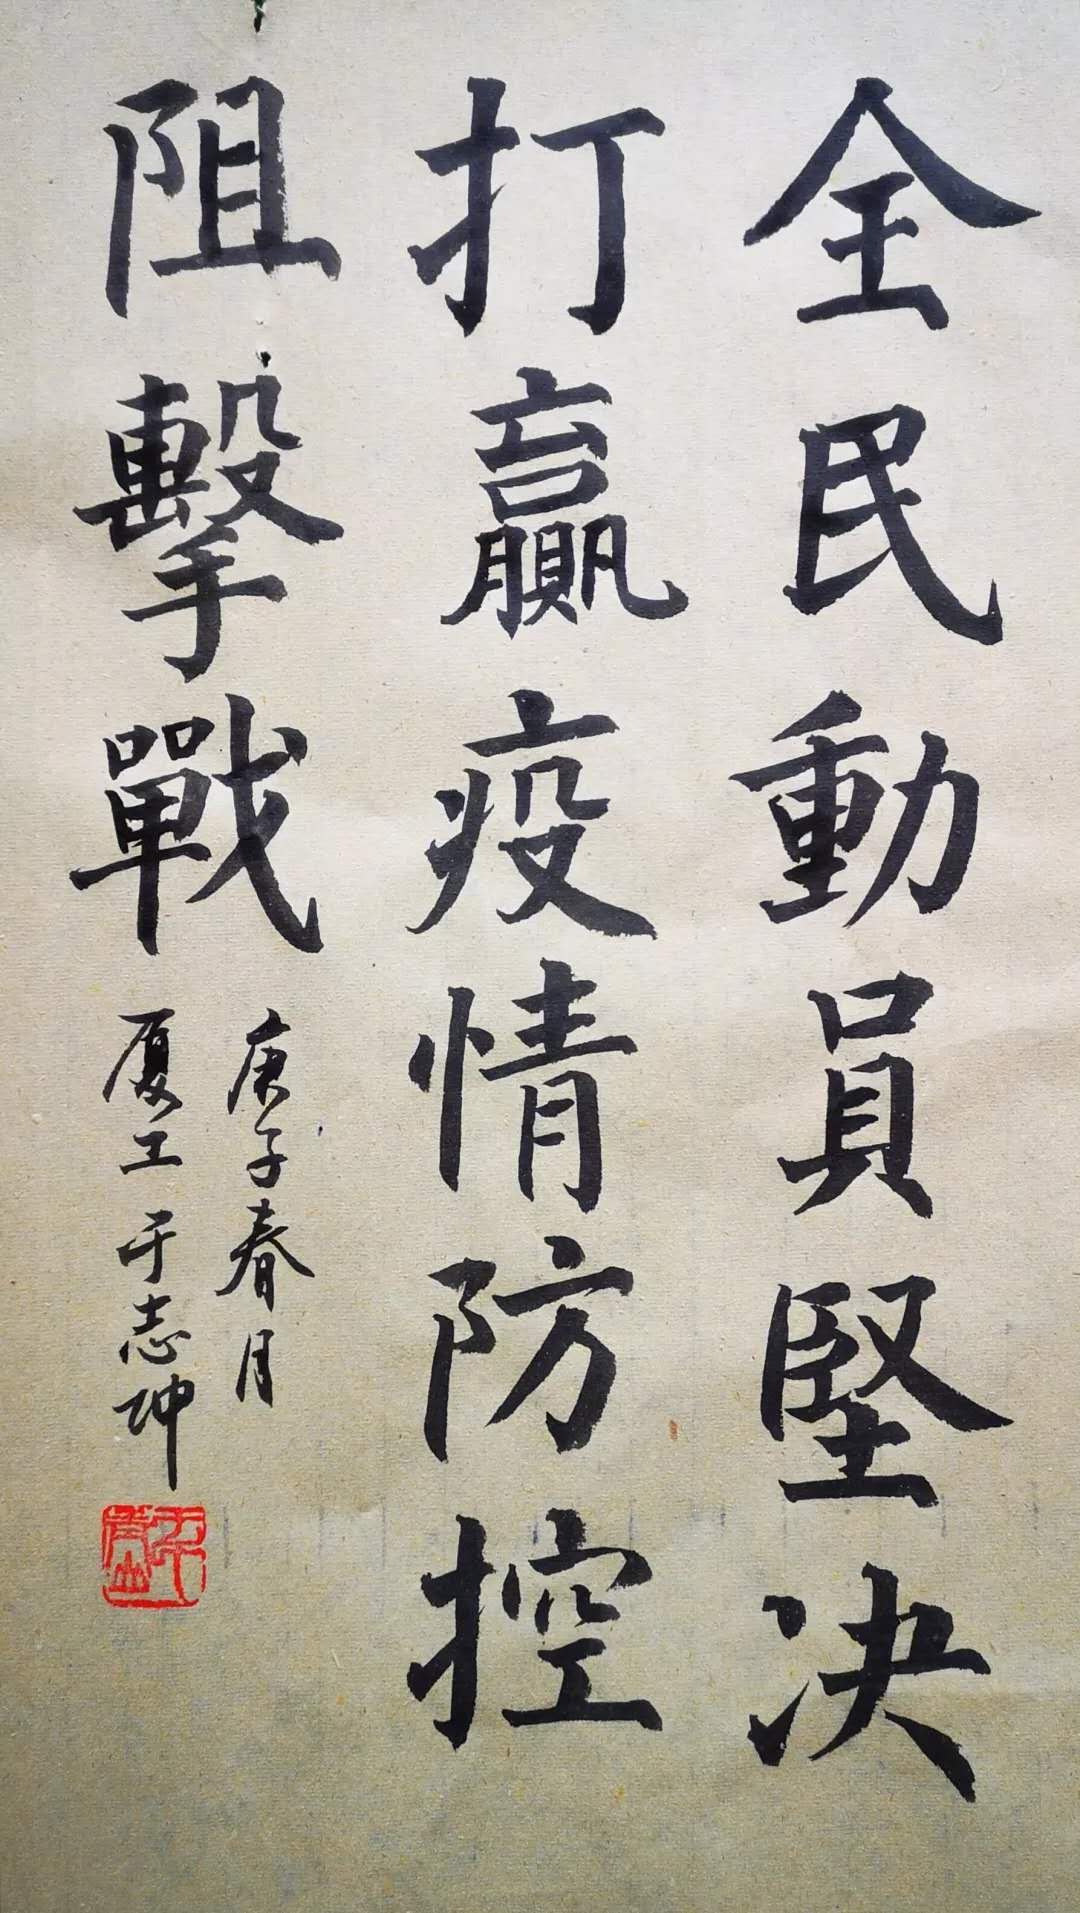 全民動員堅决
打贏疫情防控
阻擊戰
庚子春月
厦工于志坤